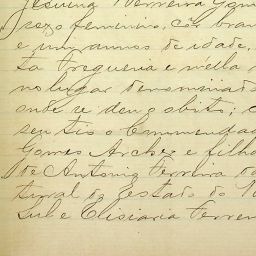 Jesuina Ferreira Gom
sexo feminino, côr bran
e um annos de idade,
ta freguezia e nella
no lugar denominado
onde se deu o obito; 
seu tio o Commendad
Gomes Archer e filha
de Antonio Ferreira da
tural do Estado do
Lub e Elisiaria Ferrei